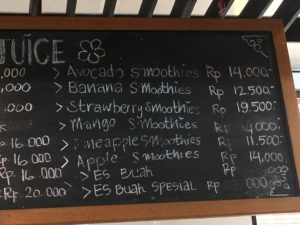 JUICE
,000 > Avocado Smoothies Rp 14.000.-
,000 > Banana Smoothies Rp 12.500-
.000 > Strawberry Smoothies Rp 19.500-
> Mango Smoothies Rp 14.000-
Rp 16.000 > Pineapple Smoothies Rp 11.500-
Rp 16.000 > Apple Smoothies Rp 14,000
Rp 16.000 > Es Buah Rp
Rp 20.000 > Es Buah Spesial Rp